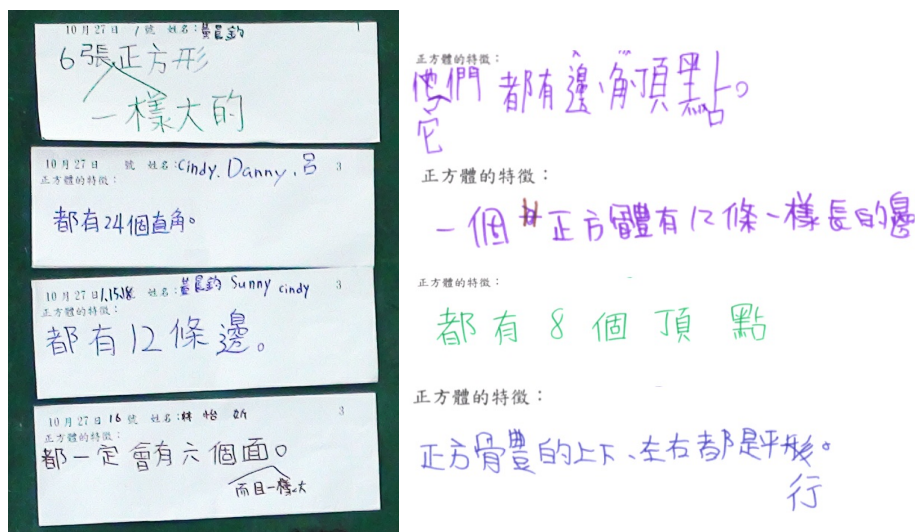 10月27日 1號 姓名：黃晨鈞 1
6張正方形
一樣大的
10月27日 號 姓名：Cindy. Danny. 呂 3
正方體的特徵：
都有24個直角。
10月27日1.15.18號 姓名：黃晨鈞 Sunny cindy 3
正方體的特徵：
都有12條邊。
10月27日 16號 姓名：林怡 3
正方體的特徵：
都一定會有六個面。
而且一樣大
正方體的特徵：
他們都有邊、角、頂點。
它
正方體的特徵：
一個正方體有12條一樣長的邊
正方體的特徵：
都有8個頂點
正方體的特徵：
正方體的上下、左右都是平形。
行